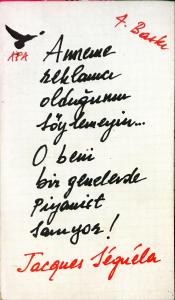 4. Baskı
AFA
Anneme
reklamcı
olduğumu
söylemeyin...
O beni
bir genelevde
Piyanist
sanıyor!
Jacques Séguéla